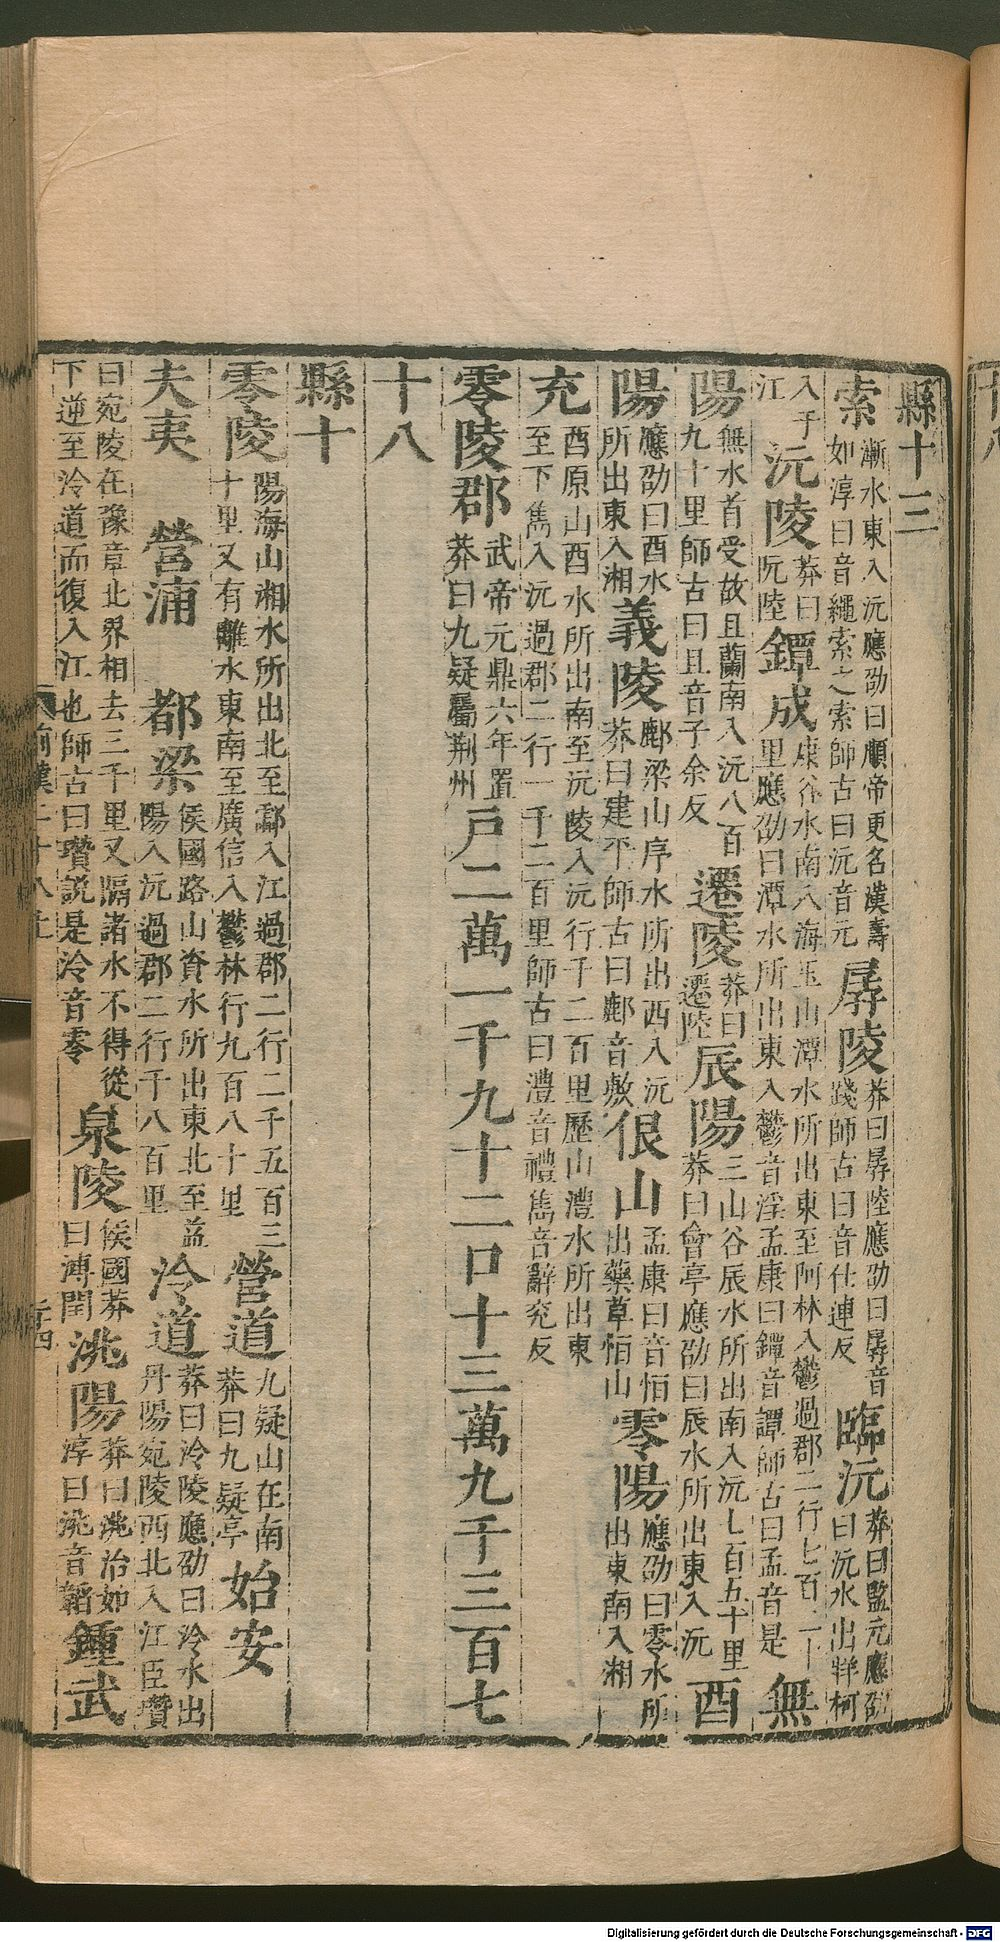 縣十三
索漸水東入沅應劭曰順帝更名漢壽如淳曰音繩索之索師古曰沅音元孱陵莽曰孱陸應劭曰孱音踐師古曰音仕連反臨沅莽曰監元應劭曰沅水出牂柯
入于江沅陵莽曰沅陸鐔成康谷水南入海玉山潭水所出東至阿林入鬱過郡二行七百二十里應劭曰潭水所出東入鬱音淫孟康曰鐔音譚師古曰孟音是無
陽無水首受故且蘭南入沅八百九十里師古曰且音子余反遷陵莽曰遷陸辰陽三山谷辰水所出南入沅七百五十里莽曰會亭應劭曰辰水所出東入沅酉
陽應劭曰酉水所出東入湘義陵鄜梁山序水所出西入沅莽曰建平師古曰鄜音敷佷山孟康曰音恒出藥草恒山零陽應劭曰零水所出東南入湘
充酉原山酉水所出南至沅陵入沅行千二百里歷山澧水所出東至下雋入沅過郡二行一千二百里師古曰澧音禮雋音辭兖反
零陵郡武帝元鼎六年置莽曰九疑屬荆州戸二萬一千九十二口十三萬九千三百七
十八
縣十
零陵陽海山湘水所出北至酃入江過郡二行二千五百三十里又有離水東南至廣信入鬱林行九百八十里營道九疑山在南莽曰九疑亭始安
夫夷 營浦 都梁侯國路山資水所出東北至益陽入沅過郡二行千八百里泠道莽曰泠陵應劭曰泠水出丹陽宛陵西北入江臣瓚
曰宛陵在豫章北界相去三千里又隔諸水不得從下逆至泠道而復入江也師古曰瓚說是泠音零泉陵侯國莽曰溥閏洮陽莽曰洮治如淳曰洮音韜鍾武
前漢二十八上
Digitalisierung gefördert durch die Deutsche Forschungsgemeinschaft - DFG